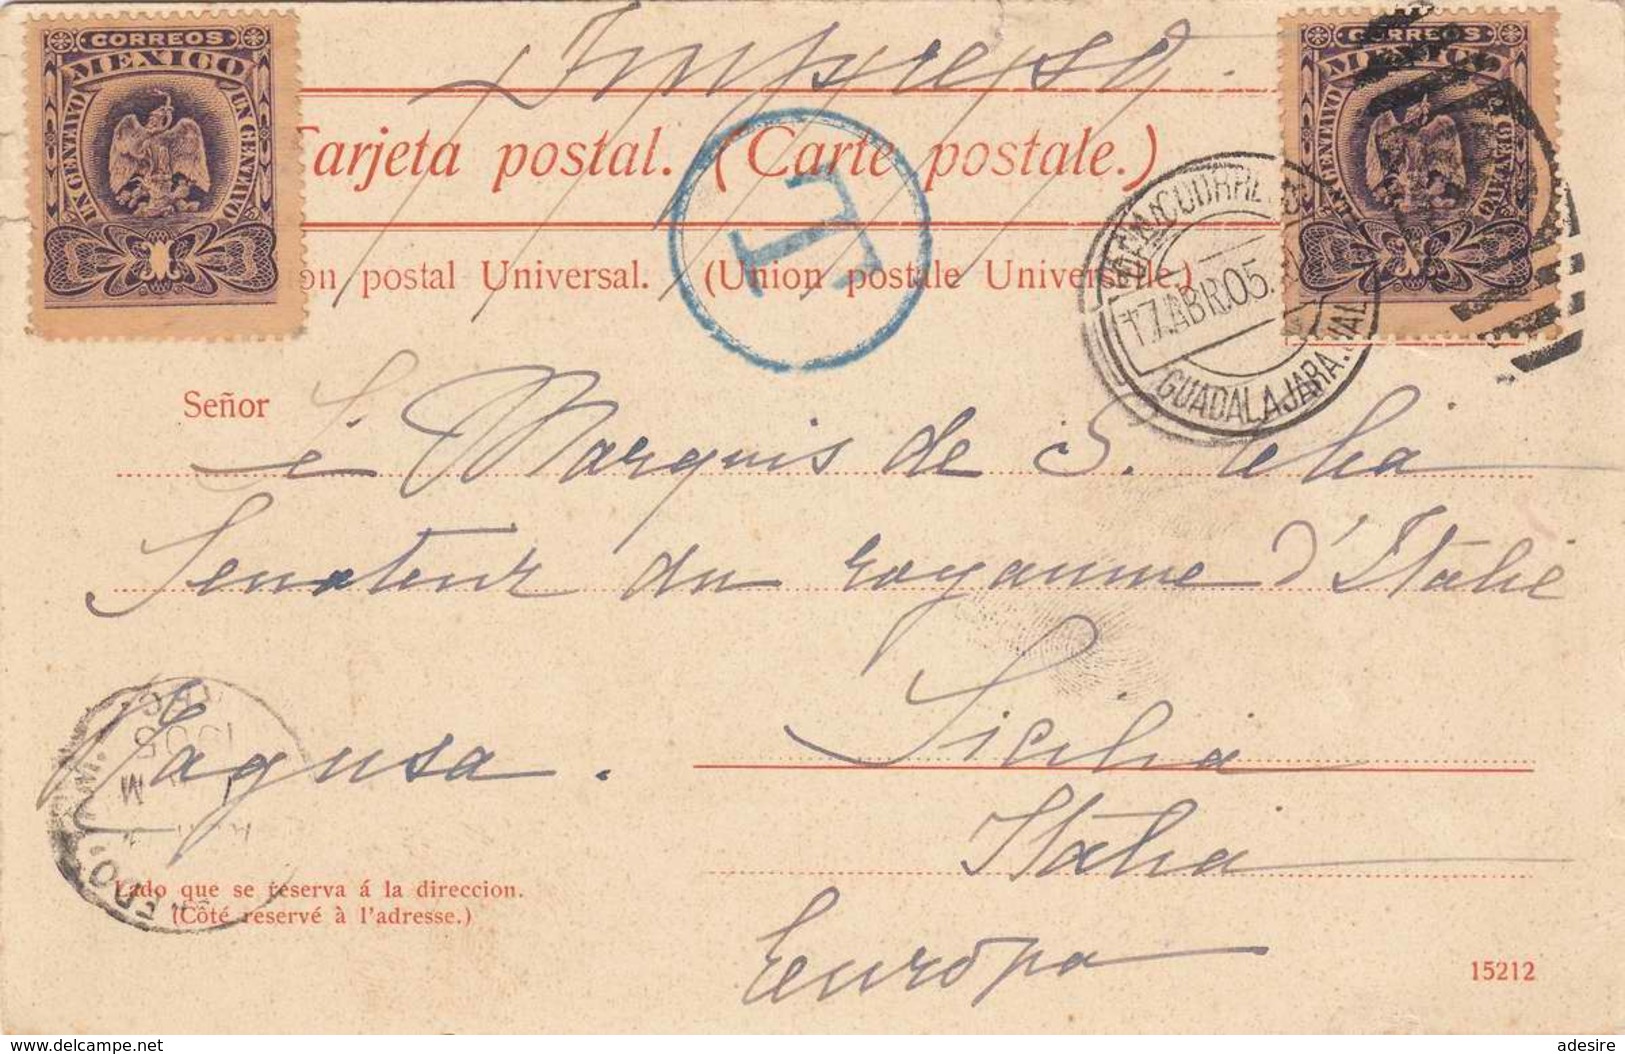 CORREOS
MEXICO
UN CENTAVO UN CENTAVO
CORREOS
MEXICO
UN CENTAVO UN CENTAVO
Impreso
Tarjeta postal. (Carte postale.)
on postal Universal. (Union postale Universelle.)
T
17.ABR.05.
GUADALAJARA.JAL
Señor
Marquis de S.
Senateur du royaume d'Italie
Sicilia
Ragusa.
Italia
Lado que se reserva á la direccion.
(Côté reservé à l'adresse.)
Europa
15212
delcampe.net
adesire